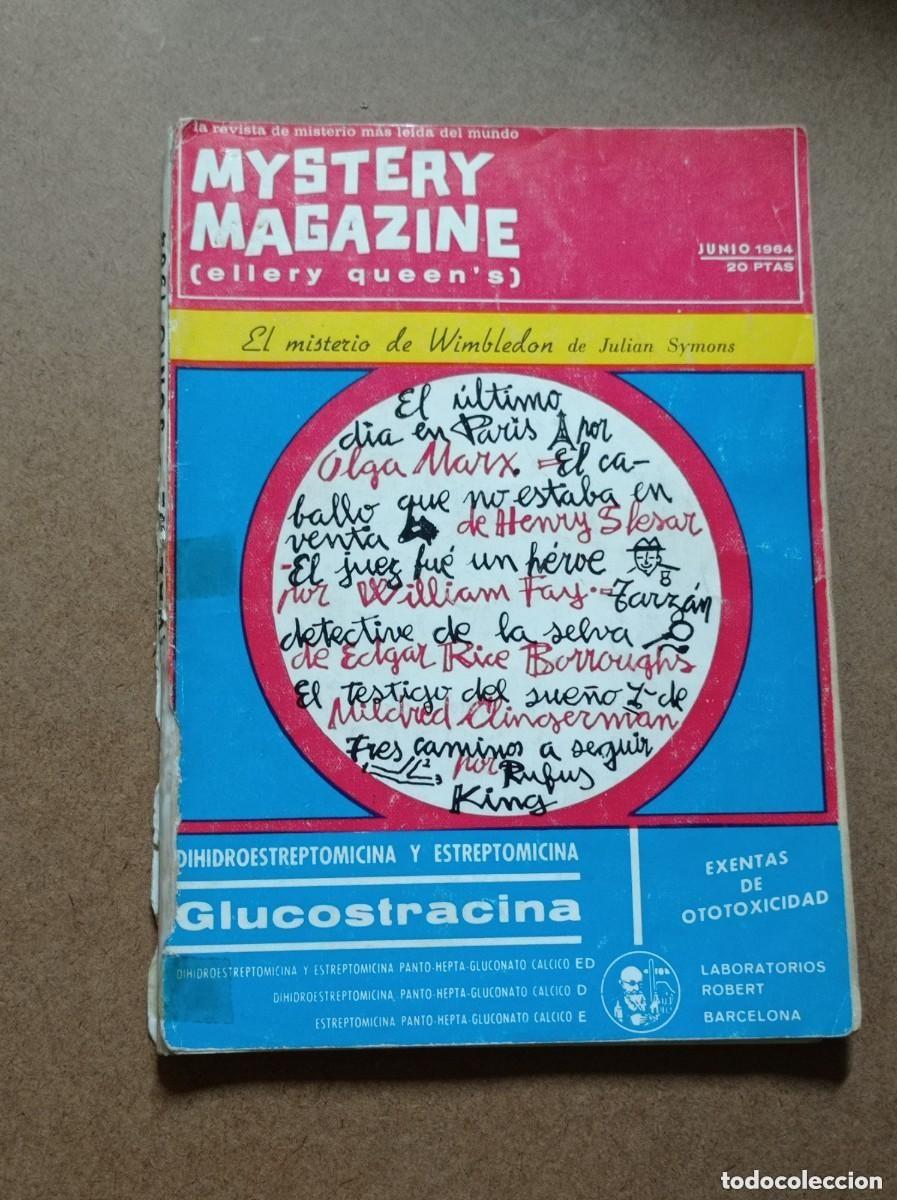 la revista de misterio más leida del mundo
MYSTERY
MAGAZINE
(ellery queen's)
JUNIO 1964
20 PTAS
El misterio de Wimbledon de Julian Symons
El último
dia en Paris por
Olga Marx. - El ca-
ballo que no estaba en
venta de Henry Slesar
-El juez fué un héroe
por William Fay. - Tarzán
detective de la selva
de Edgar Rice Borroughs
El testigo del sueño de
Mildred Clingerman
Tres caminos a seguir
por Rufus
King
DIHIDROESTREPTOMICINA Y ESTREPTOMICINA
Glucostracina
EXENTAS
DE
OTOTOXICIDAD
DIHIDROESTREPTOMICINA Y ESTREPTOMICINA PANTO-HEPTA-GLUCONATO CALCICO ED
DIHIDROESTREPTOMICINA, PANTO-HEPTA-GLUCONATO CALCICO D
ESTREPTOMICINA PANTO-HEPTA-GLUCONATO CALCICO E
LABORATORIOS
ROBERT
BARCELONA
todocoleccion